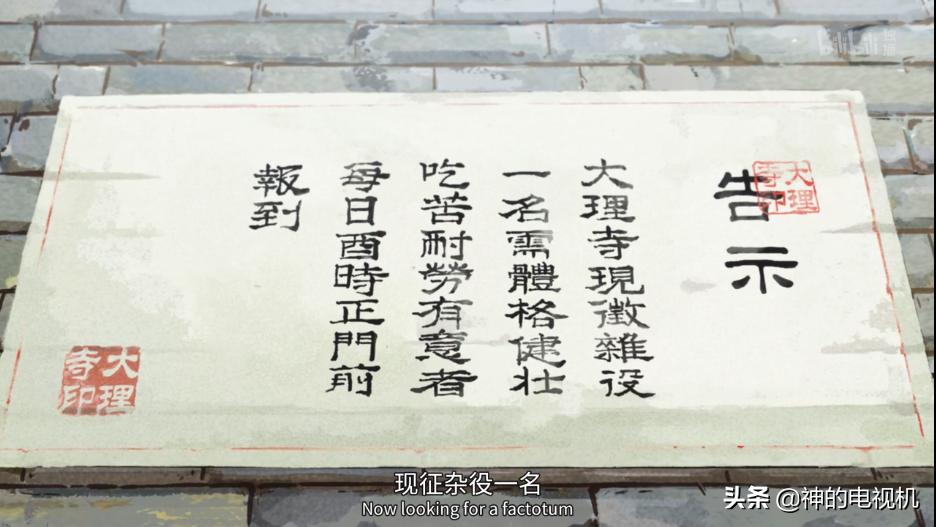 告示
大理寺現徵雜役
一名需體格健壮
吃苦耐勞有意者
每日酉時正門前
報到
大理寺印
大理寺印
bilibili
现征杂役一名
Now looking for a factotum
头条 @神的电视机